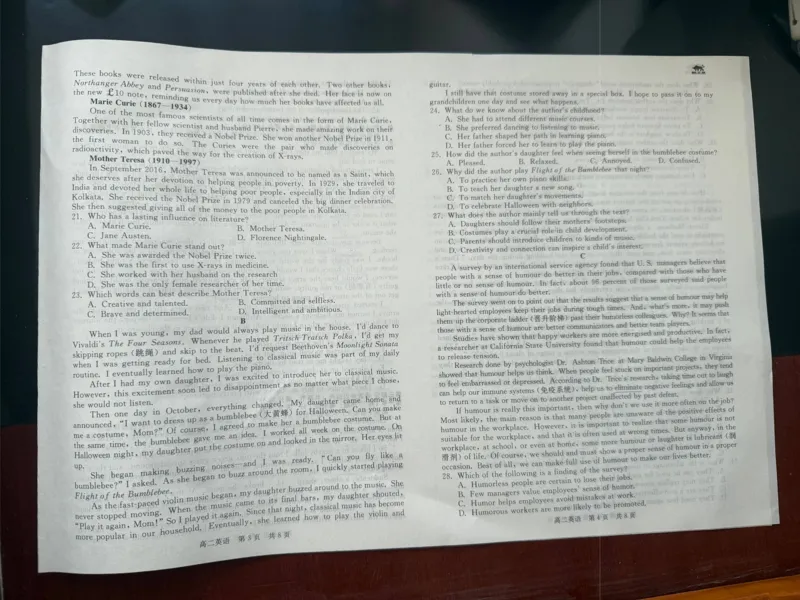 These books were released within just four years of each other. Two other books,
Northanger Abbey and Persuasion, were published after she died. Her face is now on
the new £10 note, reminding us every day how much her books have affected us all.
Marie Curie (1867—1934)
One of the most famous scientists of all time comes in the form of Marie Curie.
Together with her fellow scientist and husband Pierre, she made amazing work on their
discoveries. In 1903, they received a Nobel Prize. She won another Nobel Prize in 1911,
the first woman to do so. The Curies were the pair who made discoveries on
radioactivity, which paved the way for the creation of X-rays.
Mother Teresa (1910—1997)
In September 2016, Mother Teresa was announced to be named as a Saint, which
she deserves after her devotion to helping people in poverty. In 1929, she traveled to
India and devoted her whole life to helping poor people, especially in the Indian city of
Kolkata. She received the Nobel Prize in 1979 and canceled the big dinner celebration.
She then suggested giving all of the money to the poor people in Kolkata.
21. Who has a lasting influence on literature?
A. Marie Curie. B. Mother Teresa.
C. Jane Austen. D. Florence Nightingale.
22. What made Marie Curie stand out?
A. She was awarded the Nobel Prize twice.
B. She was the first to use X-rays in medicine.
C. She worked with her husband on the research
D. She was the only female researcher of her time.
23. Which words can best describe Mother Teresa?
A. Creative and talented. B. Committed and selfless.
C. Brave and determined. D. Intelligent and ambitious.
B
When I was young, my dad would always play music in the house. I'd dance to
Vivaldi's The Four Seasons. Whenever he played Tritsch-Tratsch Polka, I'd get my
skipping ropes (跳绳) and skip to the beat. I'd request Beethoven's Moonlight Sonata
when I was getting ready for bed. Listening to classical music was part of my daily
routine. I eventually learned how to play the piano.
After I had my own daughter, I was excited to introduce her to classical music.
However, this excitement soon led to disappointment as no matter what piece I chose,
she would not listen.
Then one day in October, everything changed. My daughter came home and
announced, "I want to dress up as a bumblebee (大黄蜂) for Halloween. Can you make
me a costume, Mom?" Of course, I agreed to make her a bumblebee costume. But at
the same time, the bumblebee gave me an idea. I worked all week on the costume. On
Halloween night, my daughter put the costume on and looked in the mirror. Her eyes lit
up.
She began making buzzing noises—and I was ready. "Can you fly like a
bumblebee?" I asked. As she began to buzz around the room, I quickly started playing
Flight of the Bumblebee.
As the fast-paced violin music began, my daughter buzzed around to the music. She
never stopped moving. When the music came to its final bars, my daughter shouted,
"Play it again, Mom!" So I played it again. Since that night, classical music has become
more popular in our household. Eventually, she learned how to play the violin and
高二英语 第3页 共8页
guitar.
I still have that costume stored away in a special box. I hope to pass it on to my
grandchildren one day and see what happens.
24. What do we know about the author's childhood?
A. She had to attend different music courses.
B. She preferred dancing to listening to music.
C. Her father shaped her path in learning piano.
D. Her father forced her to learn to play the piano.
25. How did the author's daughter feel when seeing herself in the bumblebee costume?
A. Pleased. B. Relaxed. C. Annoyed. D. Confused.
26. Why did the author play Flight of the Bumblebee that night?
A. To practice her own piano skills.
B. To teach her daughter a new song.
C. To match her daughter's movements.
D. To celebrate Halloween with neighbors.
27. What does the author mainly tell us through the text?
A. Daughters should follow their mothers' footsteps.
B. Costumes play a crucial role in child development.
C. Parents should introduce children to kinds of music.
D. Creativity and connection can inspire a child's interest.
C
A survey by an international service agency found that U. S. managers believe that
people with a sense of humour do better in their jobs, compared with those who have
little or no sense of humour. In fact, about 96 percent of those surveyed said people
with a sense of humour do better.
The survey went on to point out that the results suggest that a sense of humour may help
light-hearted employees keep their jobs during tough times. And, what's more, it may push
them up the corporate ladder (晋升阶梯) past their humorless colleagues. Why? It seems that
those with a sense of humour are better communicators and better team players.
Studies have shown that happy workers are more energized and productive. In fact,
a researcher at California State University found that humour could help the employees
to release tension.
Research done by psychologist Dr. Ashton Trice at Mary Baldwin College in Virginia
showed that humour helps us think. When people feel stuck on important projects, they tend
to feel embarrassed or depressed. According to Dr. Trice's research, taking time out to laugh
can help our immune systems (免疫系统), help us to eliminate negative feelings and allow us
to return to a task or move on to another project unaffected by past defeat.
If humour is really this important, then why don't we use it more often on the job?
Most likely, the main reason is that many people are unaware of the positive effects of
humour in the workplace. However, it is important to realize that some humour is not
suitable for the workplace, and that it is often used at wrong times. But anyway, in the
workplace, at school, or even at home, some more humour or laughter is lubricant (润
滑剂) of life. Of course, we should and must show a proper sense of humour in a proper
occasion. Best of all, we can make full use of humour to make our lives better.
28. Which of the following is a finding of the survey?
A. Humorless people are certain to lose their jobs.
B. Few managers value employees' sense of humor.
C. Humor helps employees avoid mistakes at work.
D. Humorous workers are more likely to be promoted.
高二英语 第4页 共8页